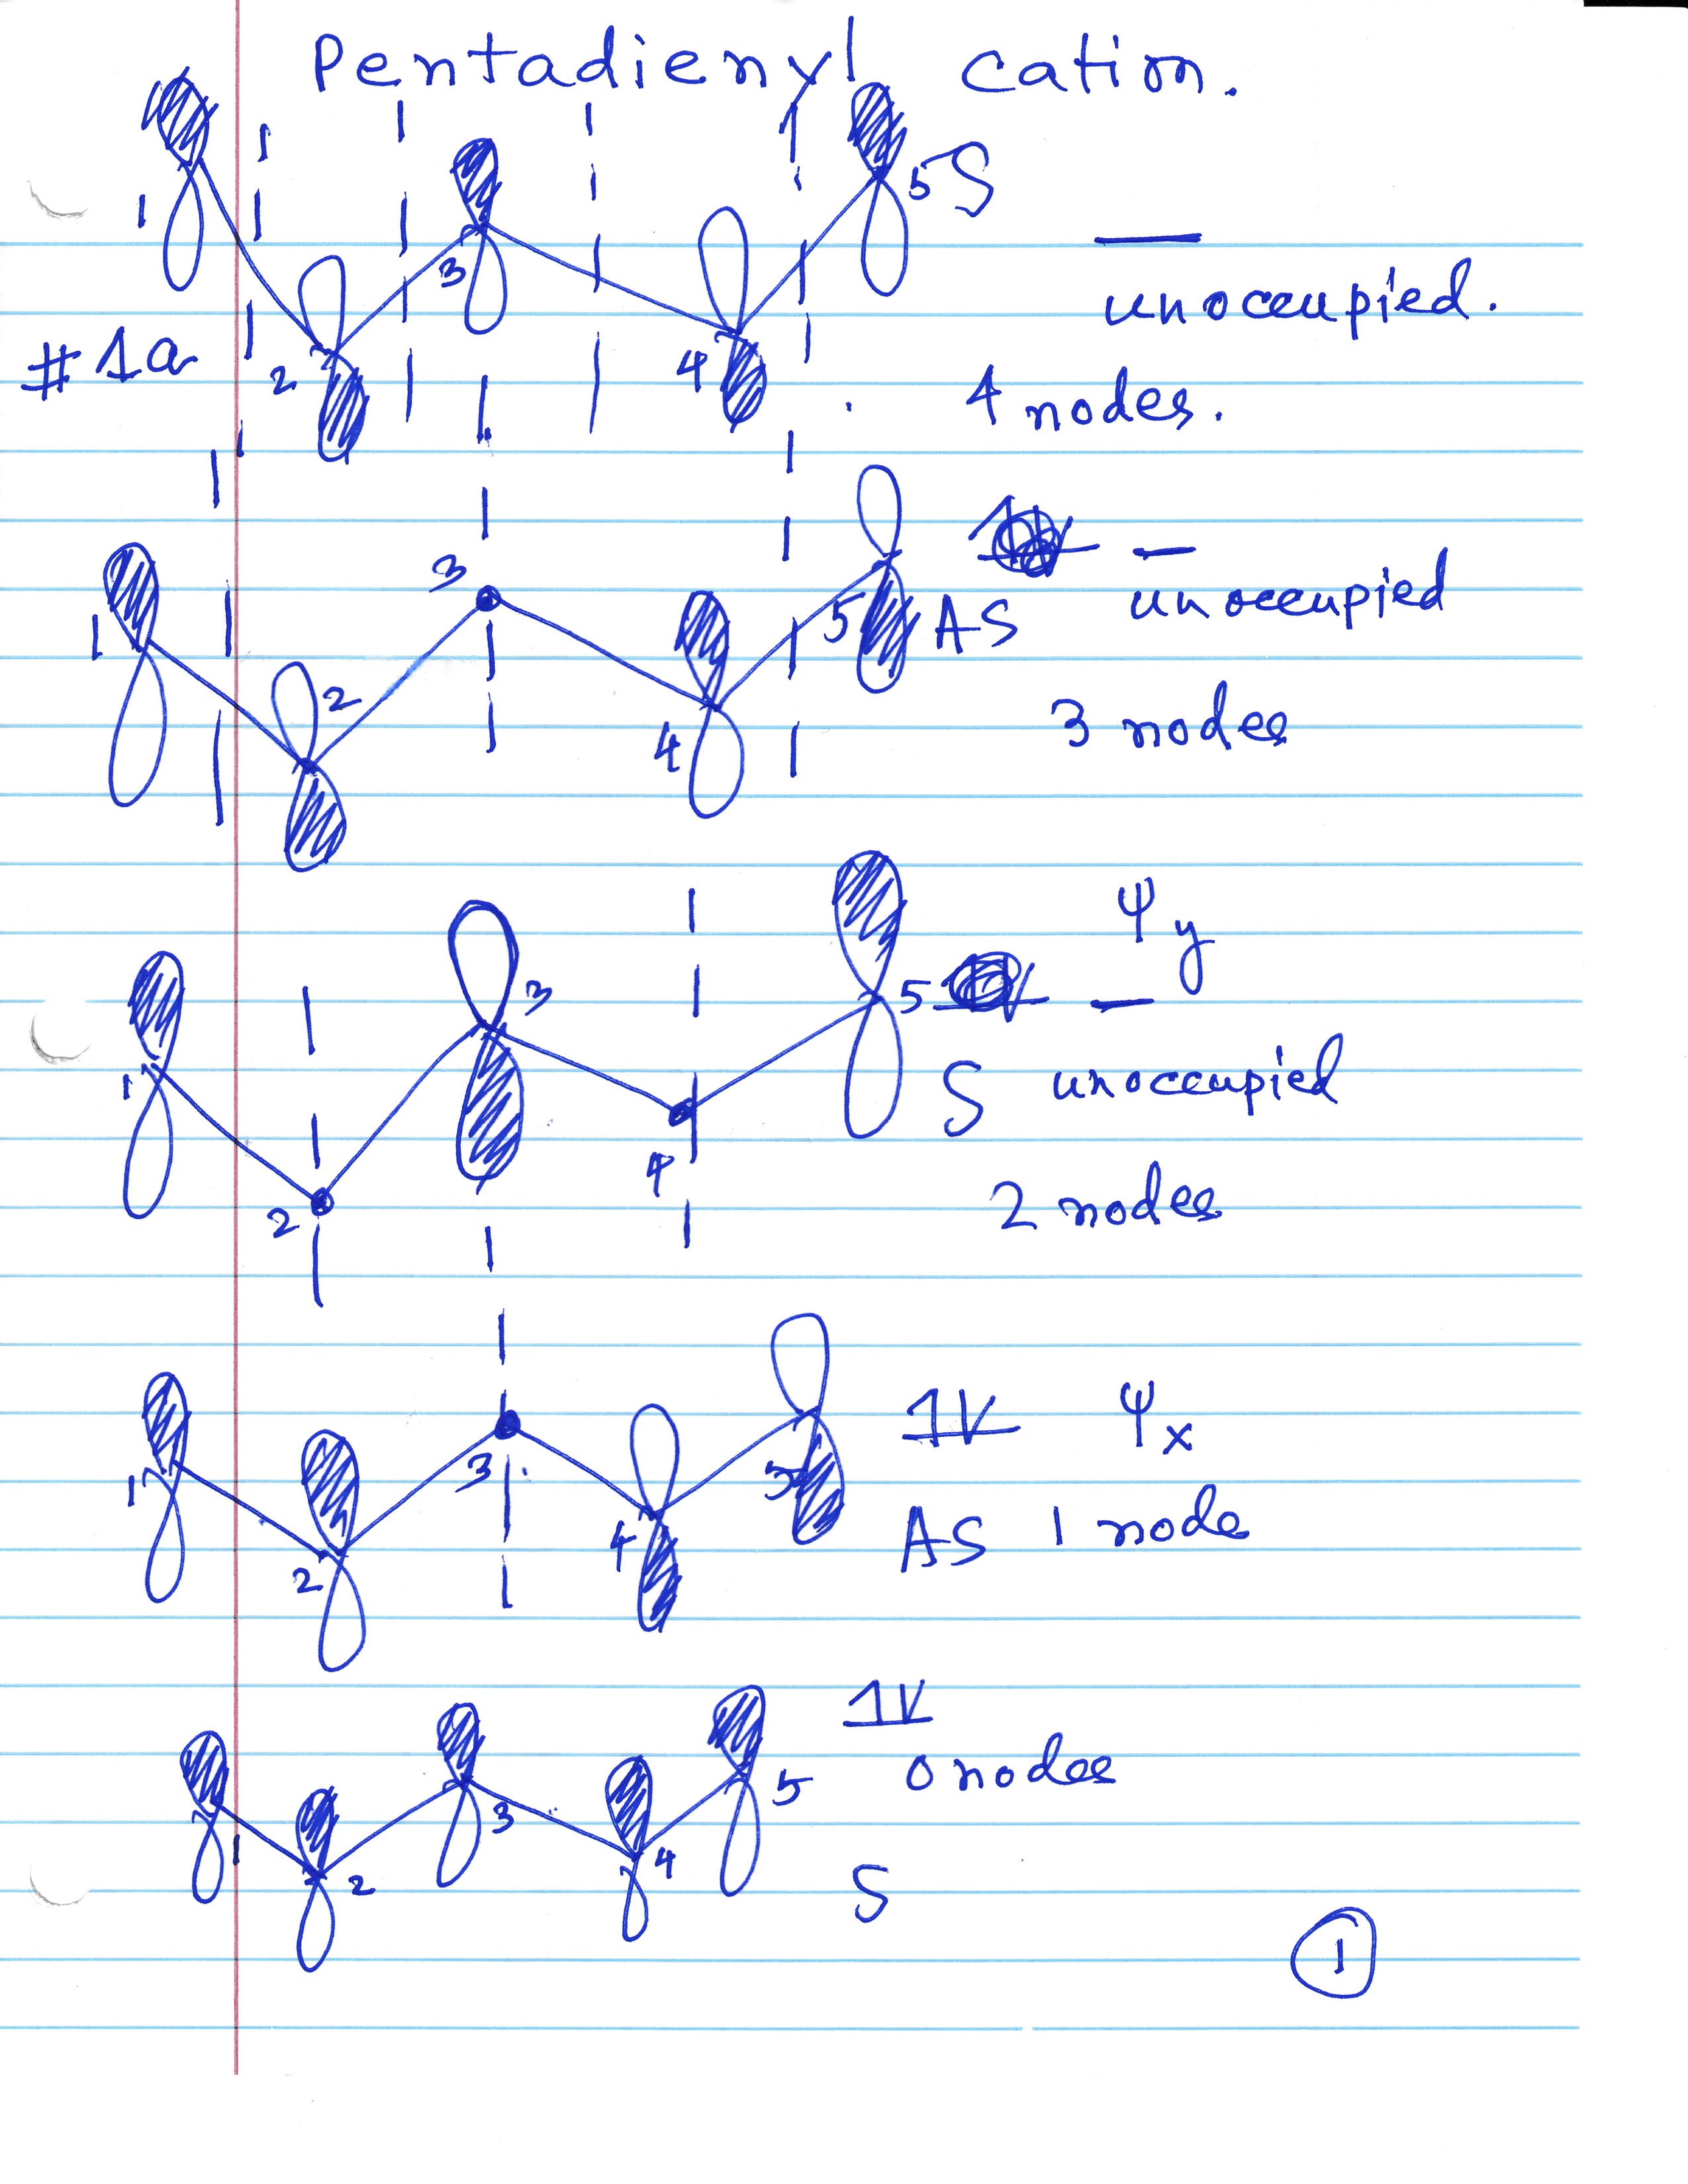 Pentadienyl cation.
1 2 3 4 5 S
unoccupied.
#1a
4 nodes.
1 2 3 4 5 AS
unoccupied
3 nodes
ψy
1 2 3 4 5
S unoccupied
2 nodes
1 2 3 4 5
ψx
AS 1 node
1 2 3 4 5
0 nodes
S
1